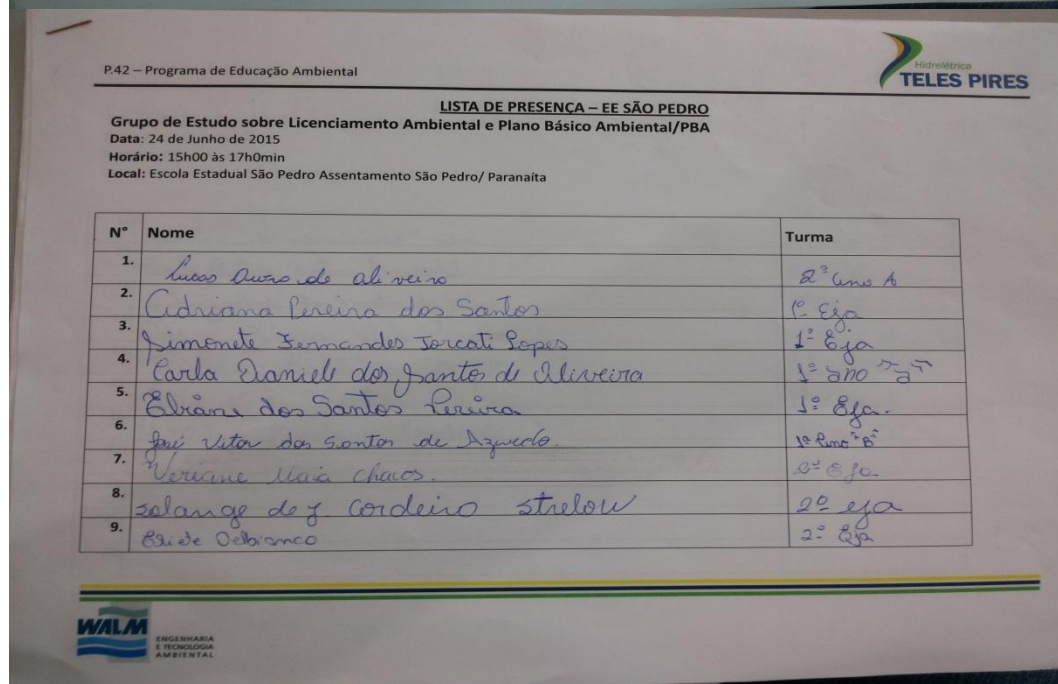 P.42 – Programa de Educação Ambiental
Hidrelétrica
TELES PIRES
LISTA DE PRESENÇA – EE SÃO PEDRO
Grupo de Estudo sobre Licenciamento Ambiental e Plano Básico Ambiental/PBA
Data: 24 de Junho de 2015
Horário: 15h00 às 17h0min
Local: Escola Estadual São Pedro Assentamento São Pedro/ Paranaíta
N° Nome Turma
1. Lucas de oliveira 2º Ano A
2. Adriana Pereira dos Santos 1º Eja
3. Simonete Fernandes Torcati Lopes 1º Eja
4. Carla Daniele dos Santos de Oliveira 1º ano "a"
5. dos Santos Pereira 1º Eja.
6. José Vitor dos Santos de Azevedo. 1º Ano "B"
7. Veriane Maia Chaves. 2º Eja
8. solange de j. cordeiro strelow 2º eja
9. Delbianco 2º Eja
WALM
ENGENHARIA
E TECNOLOGIA
AMBIENTAL